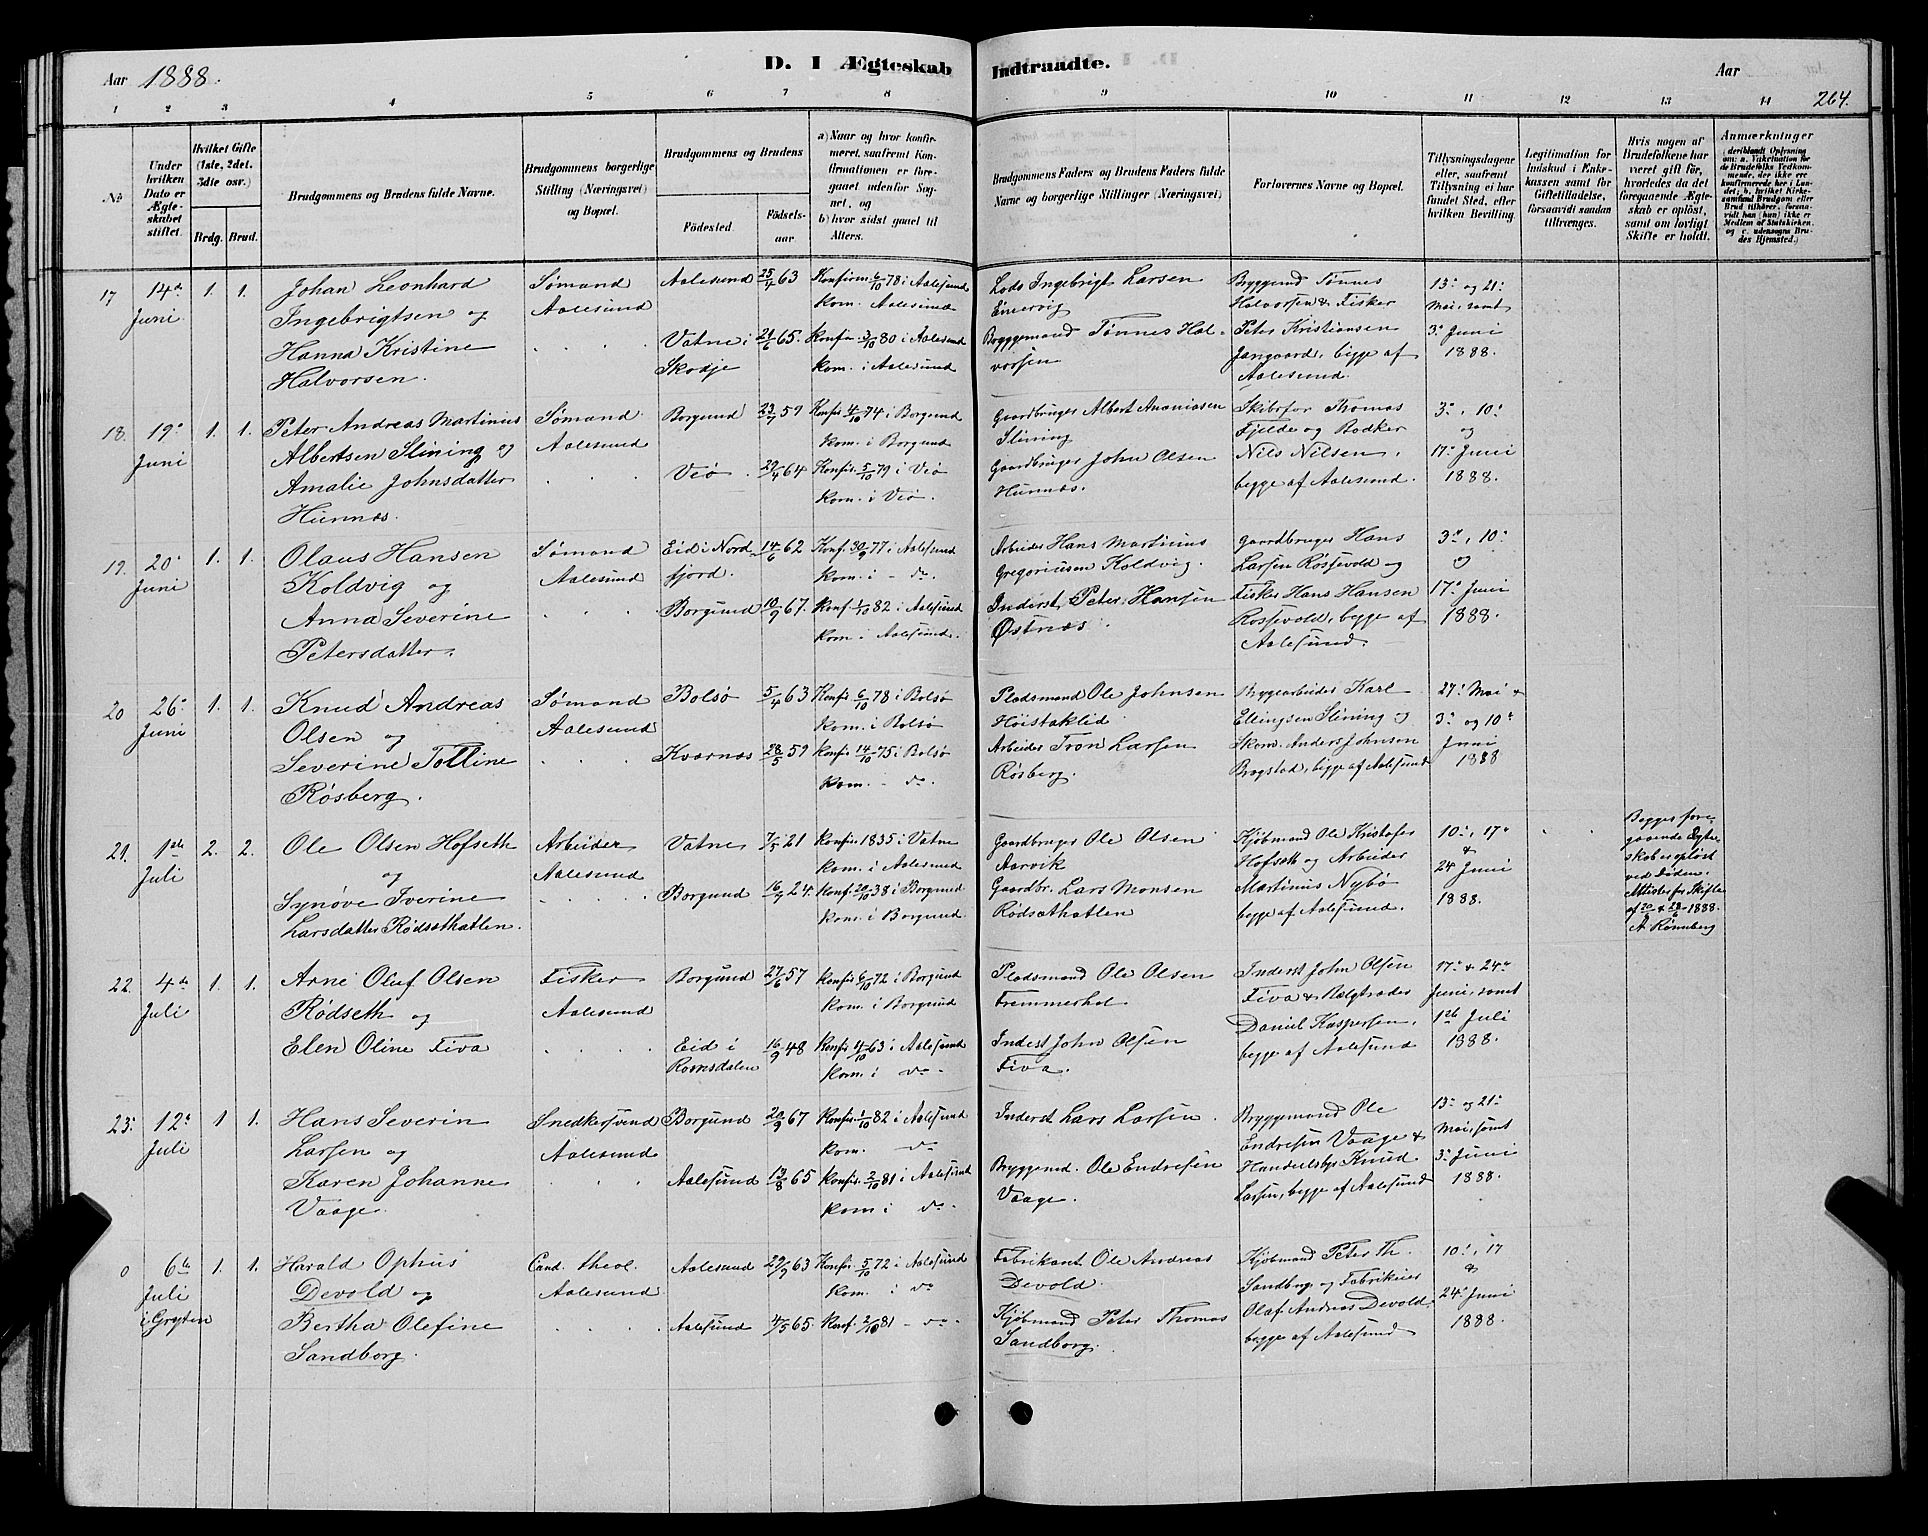 Aar 1888. D. I Ægteskab Indtraadte. Aar 264.
1 2 3 4 5 6 7 8 9 10 11 12 13 14
№
Under hvilken Dato er Ægteskabet stiftet.
Hvilket Gifte (1ste, 2det, 3die osv.)
Brdg. Brud.
Brudgommens og Brudens fulde Navne.
Brudgommens borgerlige Stilling (Næringsvei) og Bopæl.
Brudgommens og Brudens
Födested. Födselsaar
a) Naar og hvor konfirmeret, saafremt Konfirmationen er foregaaet udenfor Sognet, og
b) hvor sidst gaaet til Alters.
Brudgommens Faders og Brudens Faders fulde Navne og borgerlige Stillinger (Næringsvei)
Forlovernes Navne og Bopæl.
Tillysningsdagene eller, saafremt Tillysning ei har fundet Sted, efter hvilken Bevilling.
Legitimation for Indskud i Enkekassen samt for Giftetilladelse, forsaavidt saadan tiltrænges.
Hvis nogen af Brudefolkene har været gift för, hvorledes da det foregaaende Ægteskab er oplöst, samt om lovligt Skifte er holdt.
Anmærkninger (deriblandt Oplysning om: a. Vakcination for de Brudefolks Vedkommende, der ikke ere konfirmerede her i Landet; b. hvilket Kirkesamfund Brudgom eller Brud tilhörer, forsaavidt han (hun) ikke er Medlem af Statskirken, og c. udensogns Brudes Hjemsted.)
17 14de Juni 1. 1.
Johan Leonhard
Ingebrigtsen og
Hanna Kristine
Halvorsen.
Sømand
Aalesund
Aalesund 25/4 63
Vatne i 21/6 65.
Skodje
Konfirm. 6/10 78 i Aalesund
kom. Aalesund
Konfir. 3/10 80 i Aalesund
kom. i Aalesund
Lods Ingebrigt Larsen
Bryggemand Tønnes Halvorsen
Bryggemd Tønnes
Halvorsen & Fisker
Peter Kristiansen
Jangaard, begge af
Aalesund.
13de og 21de
Mai, samt
3de Juni
1888.
18. 19de Juni 1. 1.
Peter Andreas Martinius
Albertsen Slining og
Amalie Johnsdatter
Hunnes.
Sømand
Aalesund
Borgund 23/7 59
Veø. 29/4 64
Konfir. 4/10 74 i Borgund
kom. i Borgund
Konfir. 5/10 79 i Veø
kom. i Veø.
Gaardbruger Albert Ananiasen
Slining
Gaardbruger John Olsen
Hunnæs.
Skibsfor Thomas
Fjelde og Bødker
Nils Nilsen,
begge af Aalesund.
3de, 10de
og
17de Juni
1888.
19. 20de Juni 1. 1.
Olaus Hansen
Koldvig og
Anna Severine
Petersdatter.
Sømand
Aalesund
Eid i Nordfjord. 14/6 62
Borgund 10/9 67.
Konf. 30/9 77 i Aalesund
kom. i - do.
Konf. 1/10 82 i Aalesund
kom. i Aalesund.
Arbeider Hans Martinus
Gregoriusen Koldvig.
Inderst Peter Hansen
Østnæs.
Gaardbruger Hans
Larsen Røssevold og
Fisker Hans Hansen
Rossevold, begge af
Aalesund.
3de, 10de
og
17de Juni
1888.
20 26de Juni 1. 1.
Knud Andreas
Olsen og
Severine Tolline
Røsberg.
Sømand
Aalesund
Bolsø 5/4 63
Kvernes 28/5 59
Konfir. 6/10 78 i Bolsø
Kom. i Bolsø
Konfir. 14/10 75 i Bolsø
kom. - do.
Pladsmand Ole Johnsen
Høistaklid
Arbeider Tron Larsen
Røsberg.
Bryggearbeider Karl
Ellingsen Slining og
Skom. Anders Johnsen
Brogstad, begge af Aalesund
27de Mai &
3de og 10de
Juni
1888
21. 1ste Juli 2. 2.
Ole Olsen Hofseth
og
Synøve Iverine
Larsdatter Rødsethatlen.
Arbeider
Aalesund
Vatne 7/5 21
Borgund 16/7 24.
Konfir. 1835 i Vatne
kom. i Aalesund
Konf. 20/10 38 i Borgund
kom. i Borgund
Gaardbruger Ole Olsen
Aarvik
Gaardbr. Lars Monsen
Rödsæthatlen
Kjøbmand Ole Kristofer
Hofseth og Arbeider
Martinus Nybø
begge af Aalesund.
10de, 17de
&
24 Juni
1888.
Begges foregaaende Egteskaber opløst
ved Døden.
Attester for Skifte
af 20/6 & 28/6 1888.
A Rønneberg
22. 4de Juli 1. 1.
Arne Oluf Olsen
Rødseth og
Elen Oline Fiva
Fisker
Aalesund
Borgund 27/6 57
Eid i 16/9 48
Romsdalen
Konfir. 6/10 72 i Borgund
kom. i Borgund
Konfir. 4/10 63 i Aalesund
kom. i do -
Pladsmand Ole Olsen
Fremmerhol
Inderst John Olsen
Fiva.
Inderst John Olsen
Fiva & Bælgtræder
Daniel Kaspersen,
begge af Aalesund
17de & 24de
Juni, samt
1ste Juli
1888.
23. 12te Juli 1 1.
Hans Severin
Larsen og
Karen Johanne
Vaage.
Snedkersvend
Aalesund
Borgund 20/9 67
Aalesund 13/8 65
Konfir. 1/10 82 i Aalesund
kom. do
Konfir. 2/10 81 i Aalesund
kom i do -
Inderst Lars Larsen.
Bryggemd. Ole Endresen
Vaage.
Bryggemand Ole
Endresen Vaage &
Handelsbp Knud
Larsen, begge af Aalesund
13de og 21de
Mai, samt
3de Juni
1888.
0 6te Juli i Grytten 1. 1.
Harald Ophus
Devold og
Bertha Olefine
Sandborg.
Cand. theol.
Aalesund
Aalesund 29/9 63
Aalesund 4/5 65.
Konfir. 5/10 72 i Aalesund
kom. i do
Konf. 2/10 81 - do -
Fabrikant Ole Andreas
Devold.
Kjøbmand Peter Thomas
Sandborg.
Kjøbmand Peter Th.
Sandborg og Fabrikeier
Olaf Andreas Devold,
begge af Aalesund
10de, 17
&
24de Juni
1888.